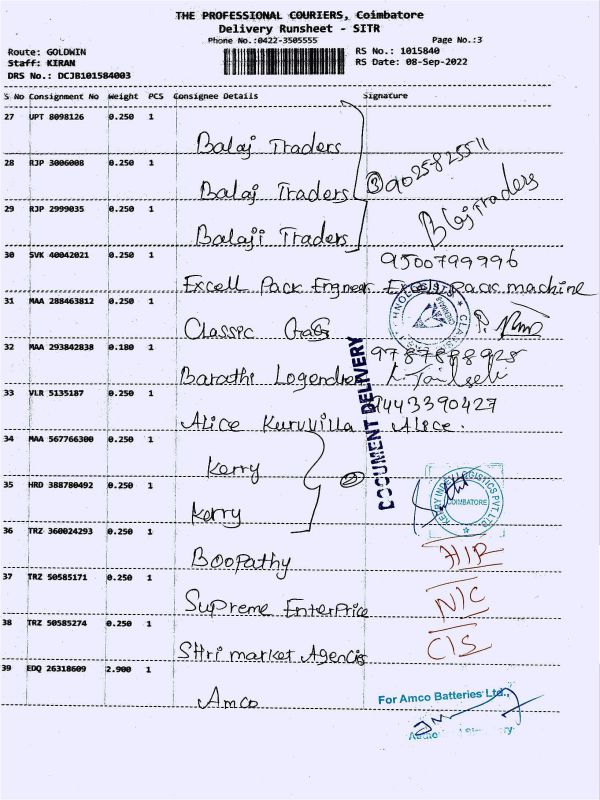 THE PROFESSIONAL COURIERS, Coimbatore
Delivery Runsheet - SITR
Phone No.:0422-3505555 Page No.:3
Route: GOLDWIN RS No.: 1015840
Staff: KIRAN RS Date: 08-Sep-2022
DRS No.: DCJB101584003
S No Consignment No Weight PCS Consignee Details Signature
27 UPT 8098126 0.250 1
Balaj Traders
28 RJP 3006008 0.250 1
③ 9025825511
Balaj Traders
29 RJP 2999035 0.250 1
Blaj Traders
Balaji Traders
30 SVK 40042021 0.250 1
9500799996
Excell Pack Engneer Excell pack machine
31 MAA 288463812 0.250 1
Classic
32 MAA 293842838 0.180 1
9787888925
Barathi Logendren
33 VLR 5135187 0.250 1
9443390427
Alice Kuruvilla Alice.
DOCUMENT DELIVERY
34 MAA 567766300 0.250 1
Kerry
35 HRD 388780492 0.250 1
②
KERRY INDEV LOGISTICS PVT. LTD.
COIMBATORE
Kerry
36 TRZ 360024293 0.250 1
Boopathy
37 TRZ 50585171 0.250 1
N/C
Supreme Enterprice
38 TRZ 50585274 0.250 1
C/S
Shri market Agencis
39 EDQ 26318609 2.900 1
Amco
For Amco Batteries Ltd.,